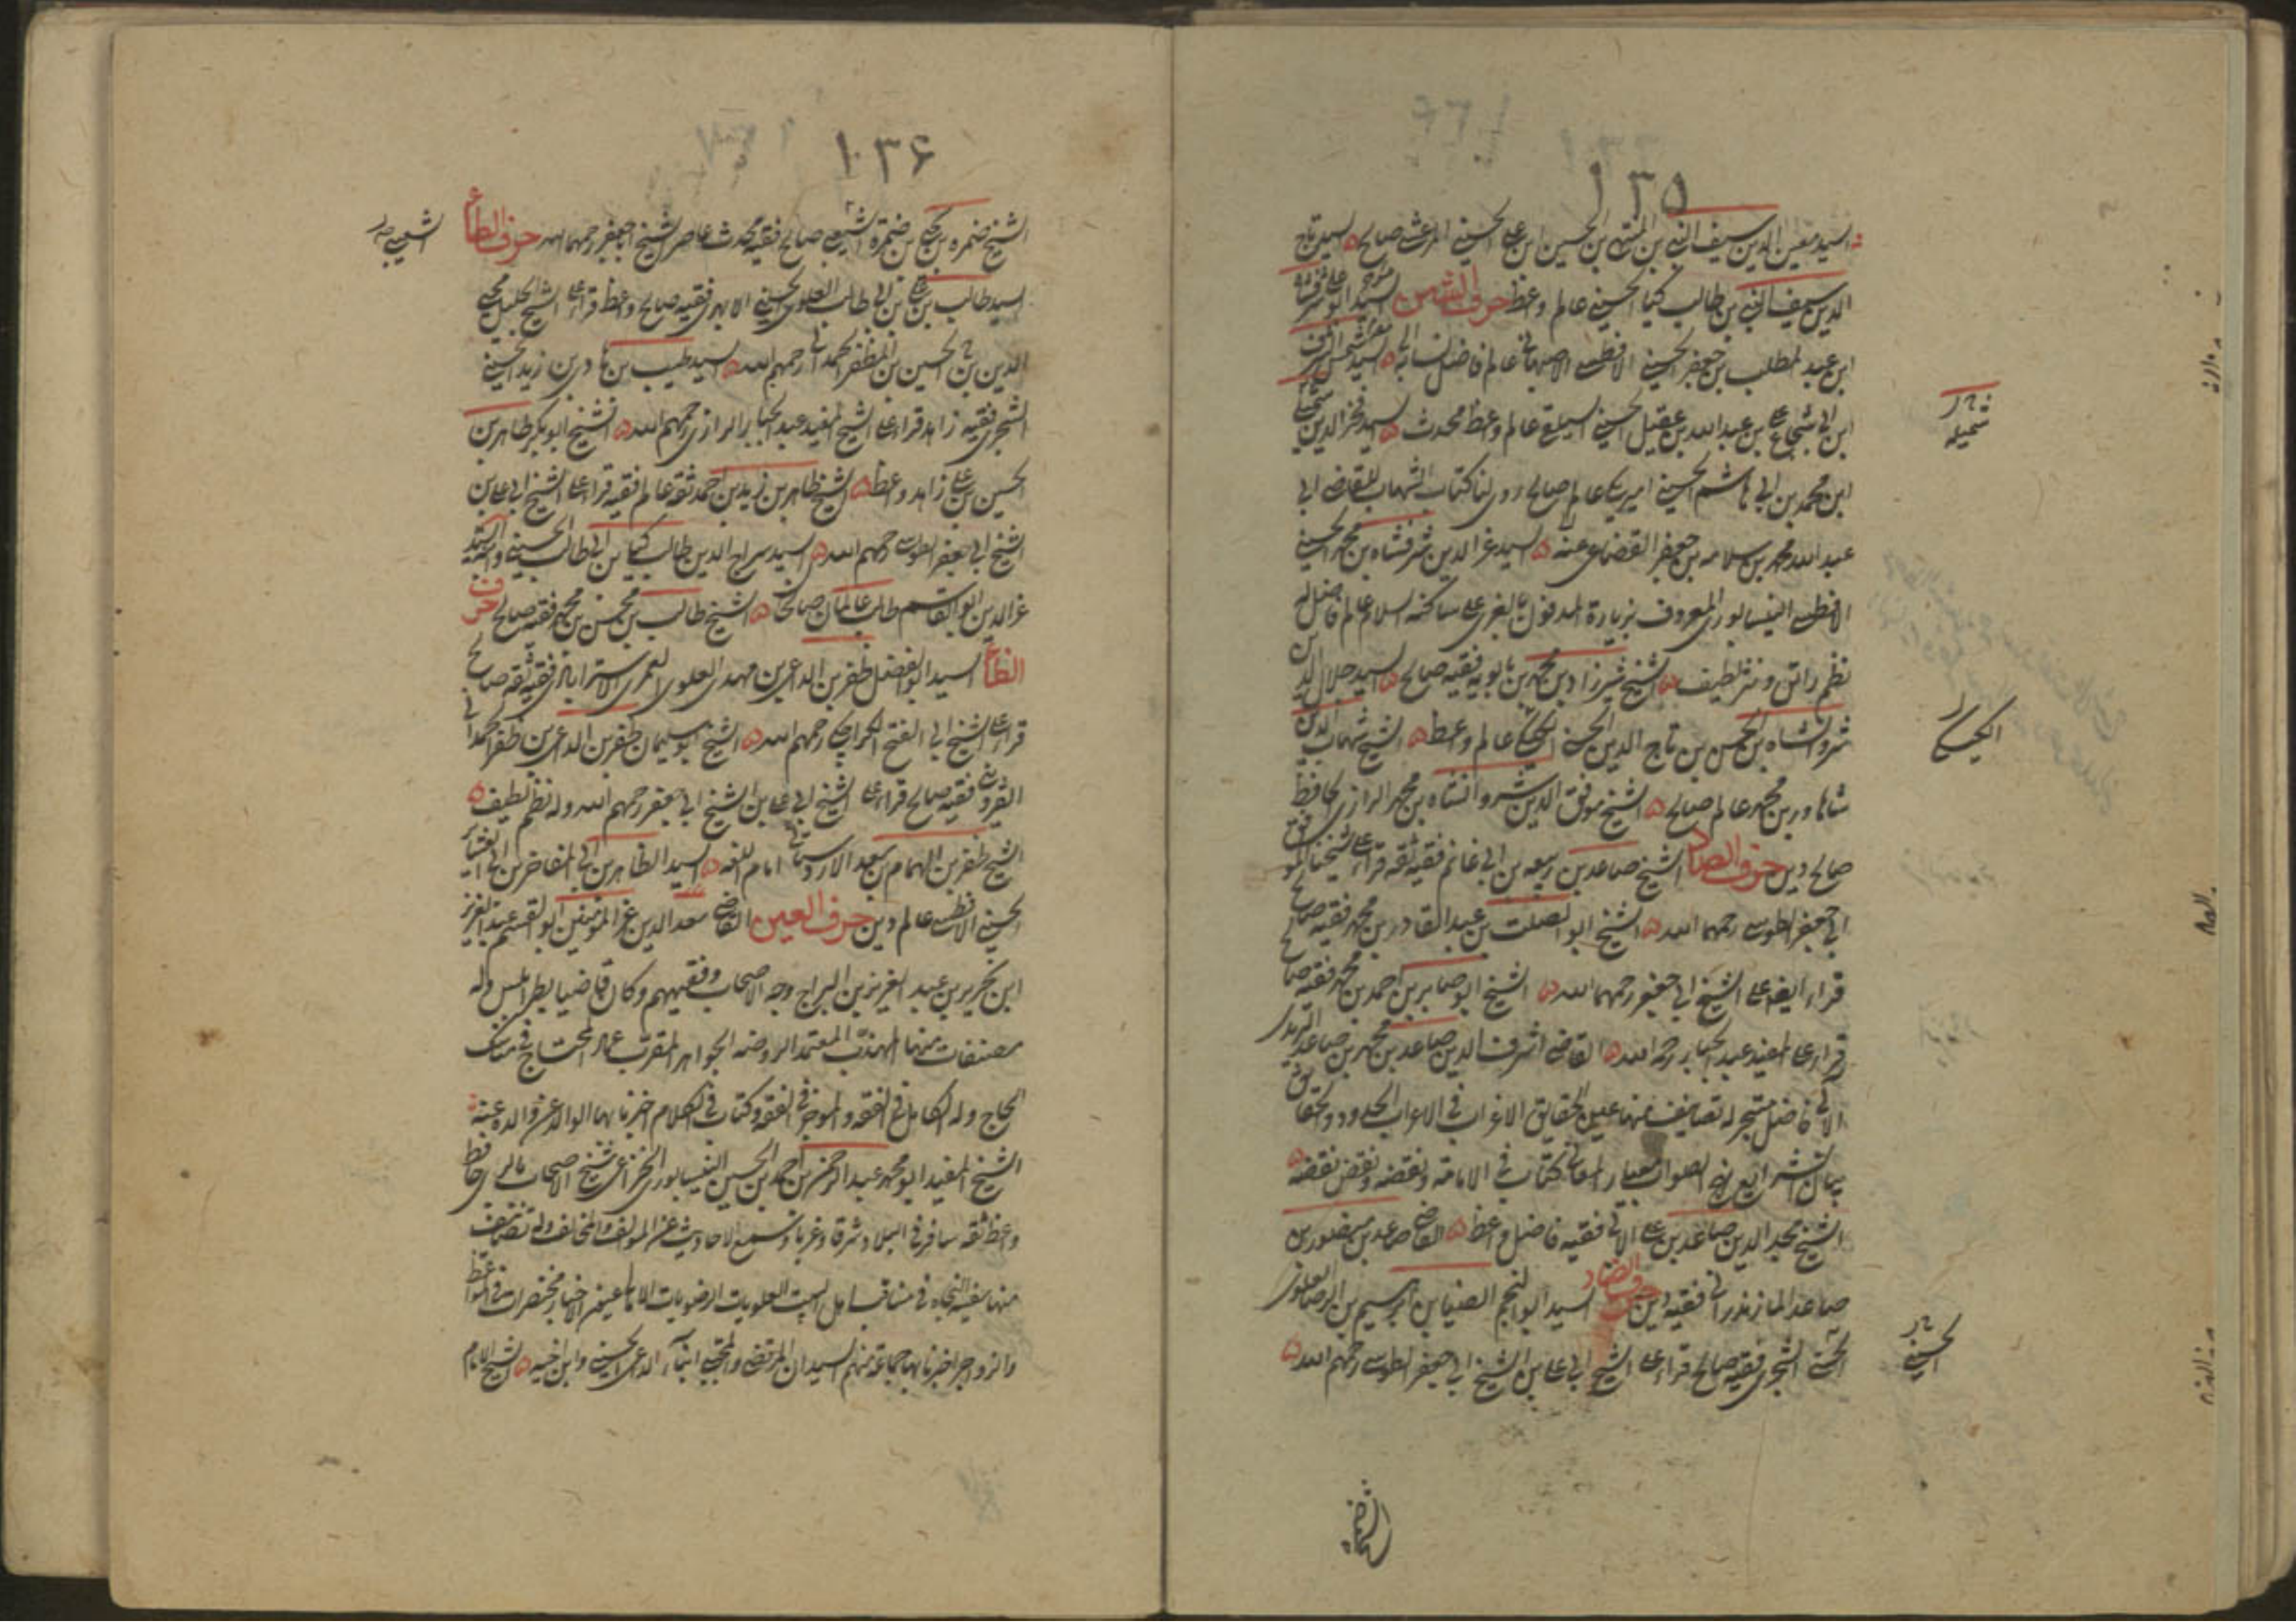 ١٣٥
السيد معين الدين سيف النبي بن المنتهى بن الحسين بن علي الحسيني المرعشي صالح السيد تاج
الدين سيف النبي بن طالب كيا الحسيني عالم واعظ حرف الشين السيد
ابن عبد المطلب بن جعفر الحسيني الافطسي الاصبهاني عالم فاضل نسابة السيد شمس الشرف
ابن ابي شجاع علي بن عبد الله بن عقيل الحسيني السيلقي عالم واعظ محدث السيد فخر الدين
ابن محمد بن ابي هاشم الحسيني اميركا عالم صالح روى لنا كتاب الشهاب للقاضي ابي
عبد الله محمد بن سلامه بن جعفر القضاعي عنه السيد عز الدين شرفشاه بن محمد الحسيني
الافطسي النيسابوري المعروف بزيارة المدفون بالغري على ساكنه السلام عالم فاضل له
نظم رائق ونثر لطيف الشيخ شيرزاد بن محمد بن بابويه فقيه صالح السيد جلال الدين
شروانشاه بن الحسن بن تاج الدين الحسني الكيسكي عالم واعظ الشيخ شهاب الدين
شاهاور بن محمد عالم صالح الشيخ موفق الدين شروانشاه بن محمد الرازي الحافظ
صالح دين حرف الصاد الشيخ صاعد بن ربيعه بن ابي غانم فقيه ثقه قراء على شيخنا الموفق
ابي جعفر الطوسي رحمهما الله الشيخ ابو الصلت بن عبد القادر بن محمد فقيه صالح
قراء ايضا على الشيخ ابي جعفر رحمهما الله الشيخ ابو صابر بن احمد بن محمد فقيه صالح
قراء على المفيد عبد الجبار رحمه الله القاضي اشرف الدين صاعد بن محمد بن صاعد البريدي
الآبي فاضل متبحر له تصانيف منها عين الحقايق الاغراب في الاعراب الحدود والحقايق
بيان الشرايع نهج الصواب معيار المعاني كتاب في الامامة ونقضه ونقض نقضه
الشيخ مجد الدين صاعد بن علي الآبي فقيه فاضل واعظ القاضي صاعد بن منصور بن
صاعد المازندراني فقيه دين حرف الضاد السيد ابو النجم الضياء بن ابرهيم بن الرضا العلوي
الحسني الشجري فقيه صالح قراء على الشيخ ابي علي بن الشيخ ابي جعفر الطوسي رحمهم الله
الكيسكي
الحسيني
الشيخ ضمرة
١٣۶
الشيخ ضمره بن يحيى بن ضمرة الشعيبي صالح فقيه محدث عاصر الشيخ ابا جعفر رحمهما الله حرف الطاء
الشعيبي
السيد طالب بن علي بن ابي طالب العلوي الحسيني الابهري فقيه صالح واعظ قراء على الشيخ الجليل محيي
الدين بن الحسين بن المظفر الحمداني رحمهم الله السيد طيب بن هادي بن زيد الحسيني
الشجري فقيه زاهد قراء على الشيخ المفيد عبد الجبار الرازي رحمهم الله الشيخ ابو بكر طاهر بن
الحسين بن علي زاهد واعظ الشيخ طاهر بن زيد بن احمد ثقه عالم فقيه قراء على الشيخ ابي علي بن
الشيخ ابي جعفر الطوسي رحمهم الله السيد سراج الدين طالب كيا بن ابي طالب الحسيني وابنه السيد
عز الدين ابو القاسم طالب عالمان صالحان الشيخ طالب بن محسن بن محمد فقيه صالح حرف
الظاء السيد ابو الفضل ظفر بن الداعي بن مهدي العلوي العمري الاسترابادي فقيه ثقه صالح
قراء على الشيخ ابي الفتح الكراجكي رحمهم الله الشيخ ابو سليمان ظفر بن الداعي بن ظفر الحمداني
القزويني فقيه صالح قراء على الشيخ ابي علي بن الشيخ ابي جعفر رحمهم الله وله نظم لطيف
الشيخ ظفر بن الهمام بن سعد الاردستاني امام اللغه السيد الظاهر بن ابي المفاخر بن ابي العشاير
الحسيني الافطسي عالم دين حرف العين القاضي سعد الدين عز المؤمنين ابو القسم عبد العزيز
ابن نحرير بن عبد العزيز بن البراج وجه الاصحاب وفقيههم وكان قاضيا بطرابلس وله
مصنفات منها المهذب المعتمد الروضه الجواهر المقرب عماد المحتاج في مناسك
الحاج وله الكامل في الفقه والموجز في الفقه وكتاب في الكلام اخبرنا بها الوالد عن والده عنه
الشيخ المفيد ابو محمد عبد الرحمن بن احمد بن الحسين النيسابوري الخزاعي شيخ الاصحاب بالري حافظ
واعظ ثقه سافر في البلاد شرقا وغربا وسمع الاحاديث عن المؤالف والمخالف وله تصانيف
منها سفينة النجاه في مناقب اهل البيت العلويات الرضويات الامالي عيون الاخبار مختصرات في المواعظ
والزواجر اخبرنا بها جماعة منهم السيدان المرتضى والمجتبى ابنا الداعي الحسيني وابن اخيه الشيخ الامام